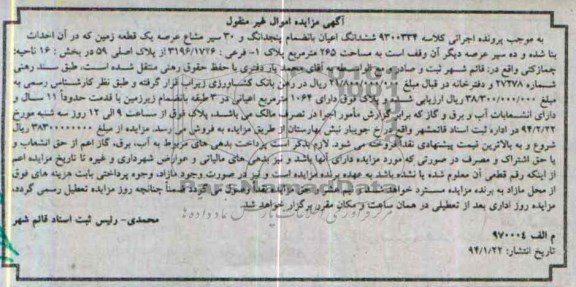 آگهی مزایده اموال غیر منقول
به موجب پرونده اجرائی کلاسه ۹۳۰۰۳۳۴ ششدانگ اعیان بانضمام پنجدانگ و ۳۰ سیر مشاع عرصه یک قطعه زمین که در آن احداث
بنا شده و ده سیر عرصه دیگر آن وقف است به مساحت ۲۶۵ مترمربع پلاک ۱- فرعی : ۳۱۹۶/۱۷۲۶ از پلاک اصلی ۵۹ در بخش : ۱۶ ناحیه:
چمازکتی واقع در: قائم شهر ثبت و صادر و مع الواسطه به آقای محمد یار دفتری با حفظ حقوق رهنی منتقل شده است. طبق سند رهنی
شماره ۲۷۲۷۸ و دفترخانه در قبال مبلغ ریال در رهن بانک کشاورزی زیراب قرار گرفته و طبق نظر کارشناس رسمی به
مبلغ ۳۸/۳۰۰/۰۰۰/۰۰۰ ریال ارزیابی شد. پلاک فوق دارای ۱۰۶۴ مترمربع اعیانی در ۳ طبقه بانضمام زیرزمین با قدمت حدوداً ۱۱ سال و
دارای انشعابات آب و برق و گاز که برابر گزارش مأمور اجرا در تصرف مالک می باشد. پلاک فوق از ساعت ۹ الی ۱۲ روز سه شنبه مورخ
۹۴/۲/۲۲ در اداره ثبت اسناد قائمشهر واقع در خ جویبار نبش بهارستان از طریق مزایده به فروش می رسد. مزایده از مبلغ ۳۸۳۰۰۰۰۰۰۰۰ ریال
شروع و به بالاترین قیمت پیشنهادی نقداً فروخته می شود. لازم بذکر است پرداخت بدهی های مربوط به آب، برق، گاز اعم از حق انشعاب و
یا حق اشتراک و مصرف در صورتی که مورد مزایده دارای آنها باشد و نیز بدهی های مالیاتی و عوارض شهرداری و غیره تا تاریخ مزایده اعم
از اینکه رقم قطعی آن معلوم شده یا نشده باشد به عهده برنده مزایده است و نیز در صورت وجود مازاد، وجوه پرداختی بابت هزینه های فوق
از محل مازاد به برنده مزایده مسترد خواهد شد ضمناً چنانچه روز مزایده تعطیل رسمی گردد،
مزایده روز اداری بعد از تعطیلی در همان ساعت و مکان مقرر برگزار خواهد شد.
محمدی- رئیس ثبت اسناد قائم شهر
م الف ۹۷۰۰۰۴
تاریخ انتشار: ۹۴/۱/۲۲